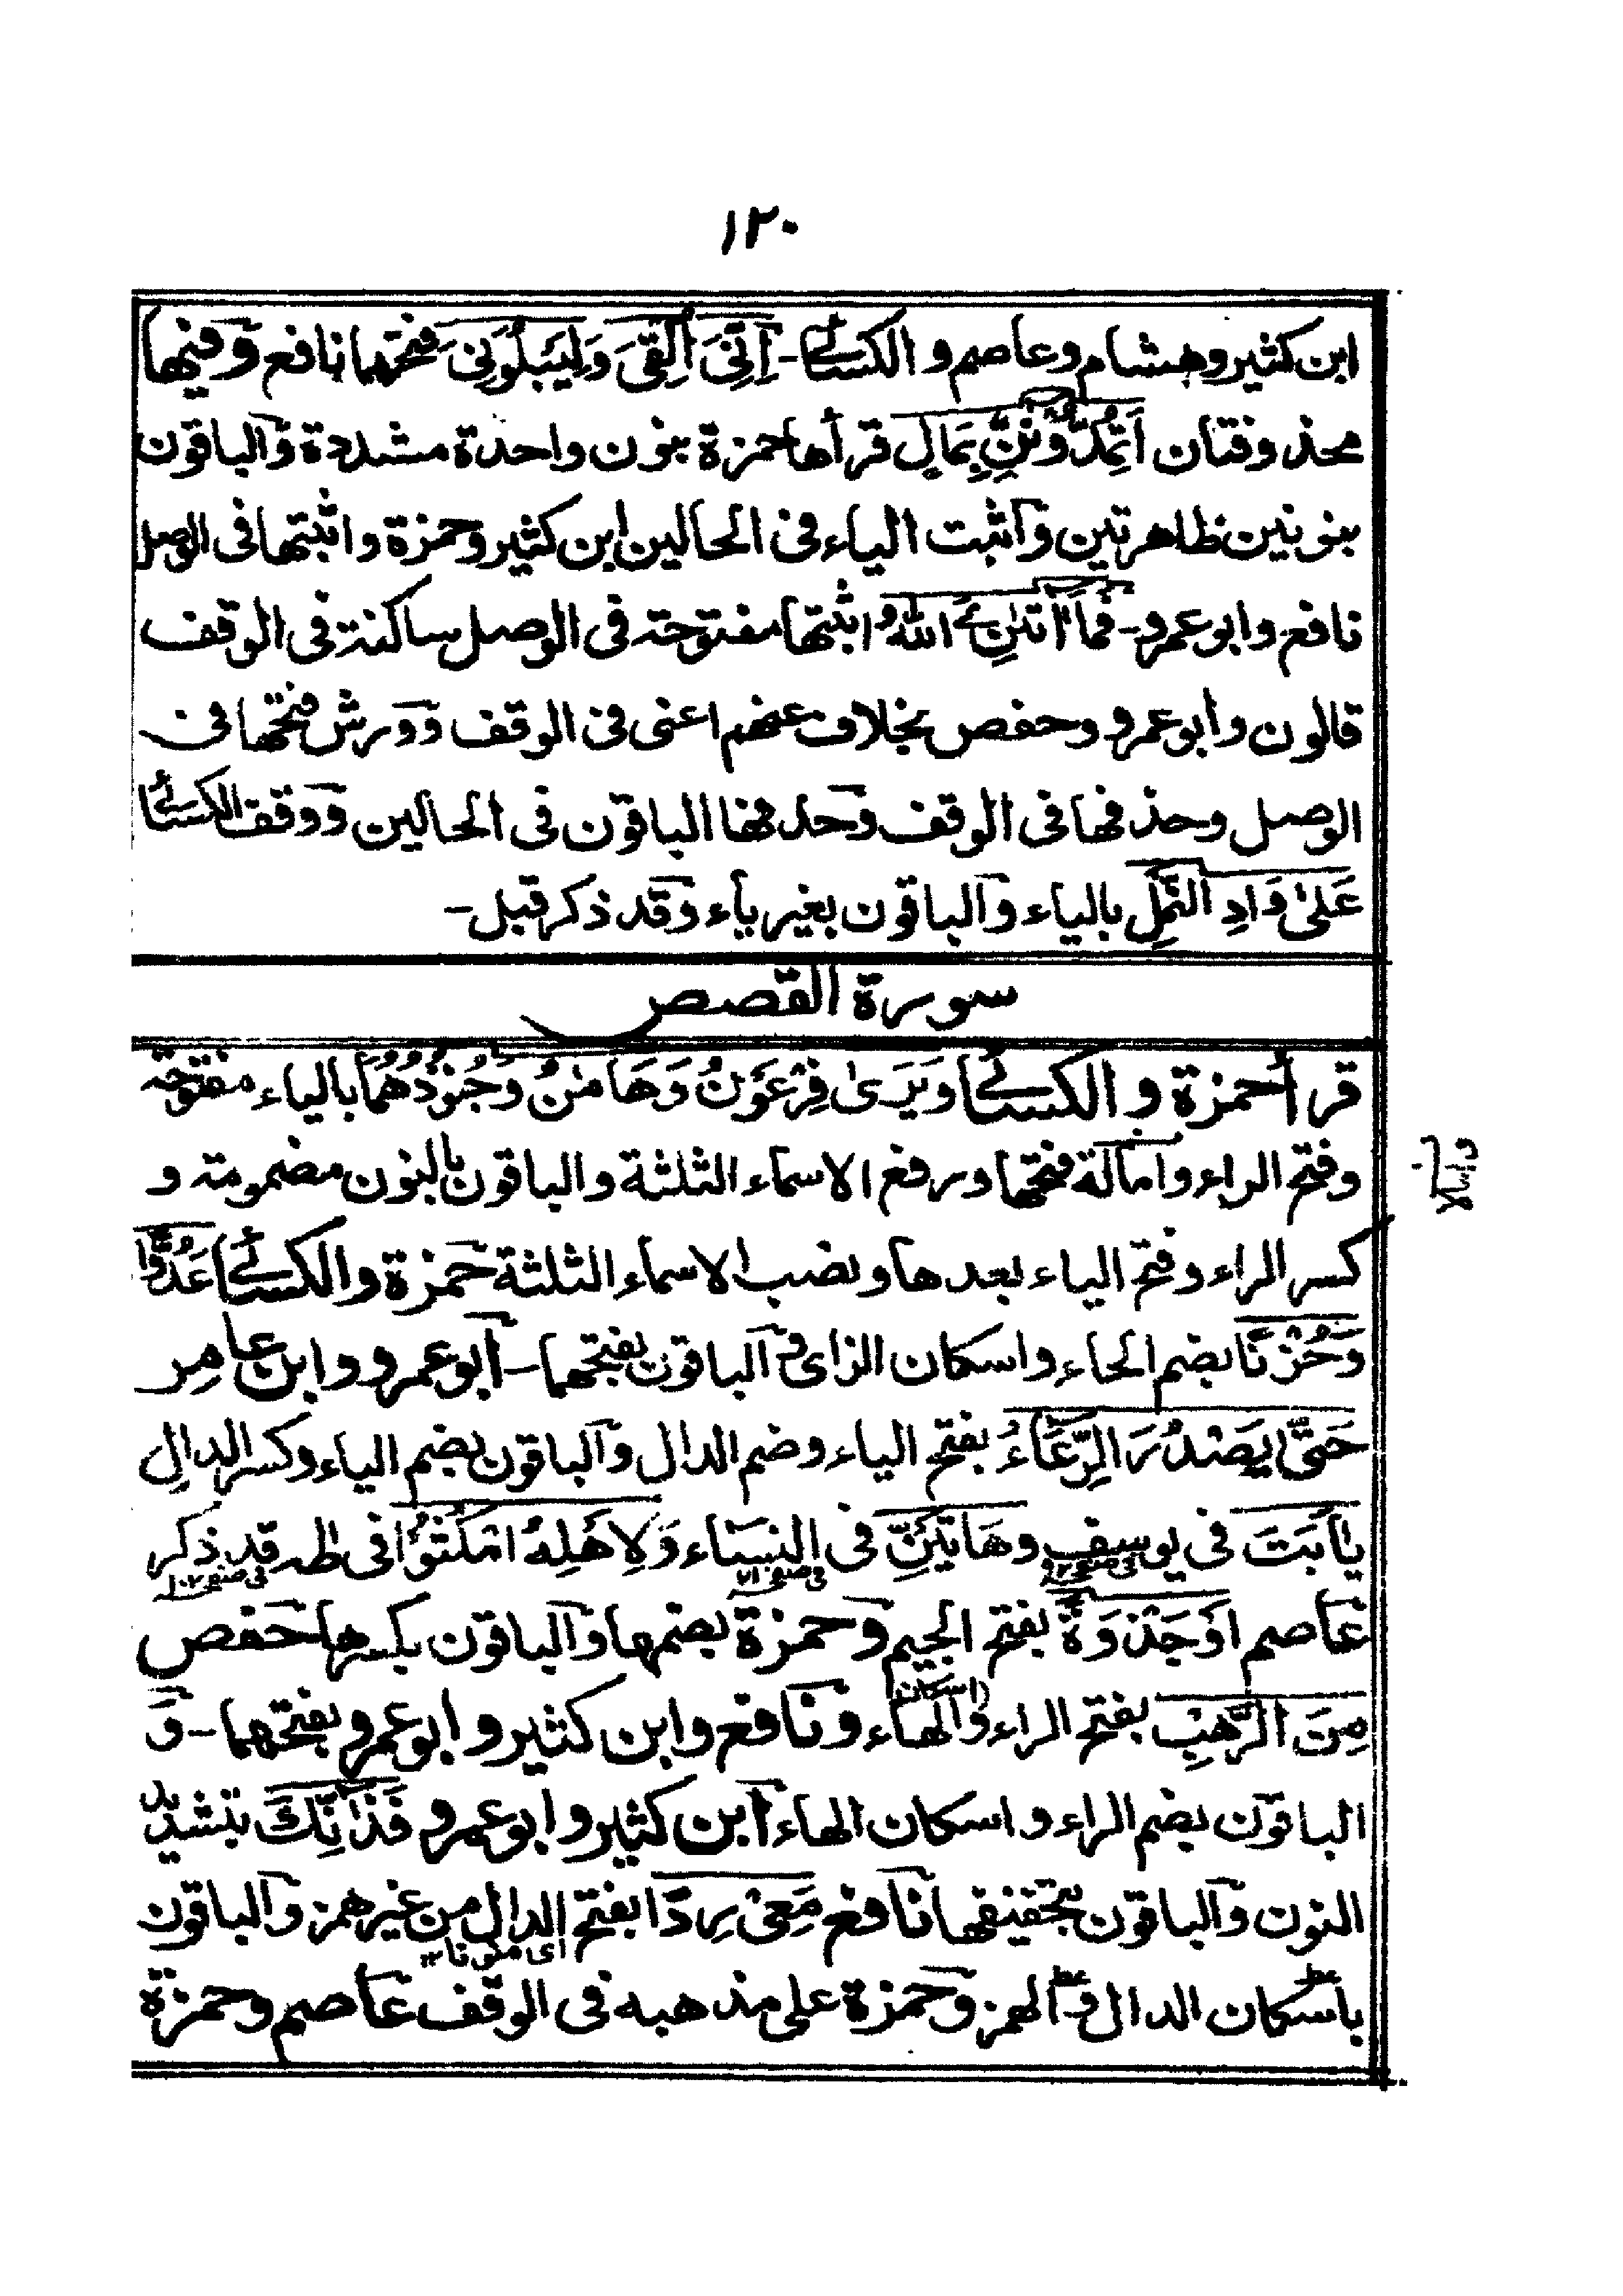 ١٢٠
ابن كثير وهشام وعاصم و الكسائے - اِنِّیَ اُلْقِیَ وَلِیَبْلُوَنِیَ فتحهما نافع وَفيها
محذوفتان اَتُمِدُّوْنَنِّ بِمَالٍ قرأها حمزة بنون واحدة مشددة وَالباقون
بنونين ظاهرتين وَاَثبت الياء فى الحالين ابن كثير وحمزة واثبتها فى الوصل
نافع وابو عمرو - فَمَاۤ اٰتٰنِ ےَ اللّٰهُ اثبتها مفتوحة فى الوصل ساكنة فى الوقف
قالون وابو عمرو وحفص بخلاف عنهم اعنى فى الوقف وَورش فتحها فى
الوصل وحذفها فى الوقف وَحذفها الباقون فى الحالين وَوقف الكسائے
عَلٰی وَادِ النَّمْلِ بالياء وَالباقون بغير ياء وَقد ذكر قبل -
سورة القصص
قرأ حمزة و الكسائے وَیَرٰی فِرْعَوْنُ وَهَامٰنُ وَجُنُوْدُهُمَا بالياء مفتوحة
وفتح الراء وامالة فتحها ورفع الاسماء الثلثة والباقون بالنون مضمومة و
كسر الراء وفتح الياء بعدها ونصب الاسماء الثلثة حمزة والكسائے عَدُوًّا
وَّحُزْنًا بضم الحاء واسكان الزاى وَالباقون بفتحهما - ابو عمرو وابن عامر
حَتّٰی یَصْدُرَ الرِّعَاءُ بفتح الياء وضم الدال وَالباقون بضم الياء وكسر الدال
یٰاَبَتَ فى يوسف وهَاتَیْنِّ فى النساء وَلِاَهْلِهُ امْكُثُوْا فى طه قد ذكر
عاصم اَوْجَذْوَةٍ بفتح الجيم وَحمزة بضمها وَالباقون بكسرها حفص
مِنَ الرَّهْبِ بفتح الراء وَ(اسكان) الهاء وَنافع وابن كثير و ابو عمرو بفتحهما - وَ
الباقون بضم الراء و اسكان الهاء ابن كثير و ابو عمرو فَذٰنِّكَ بتشديد
النون وَالباقون بتخفيفها نافع مَعِیَ رِدًا بفتح الدال من غير همز وَالباقون
باسكان الدال وَالهمز وَحمزة على مذهبه فى الوقف عاصم وحمزة